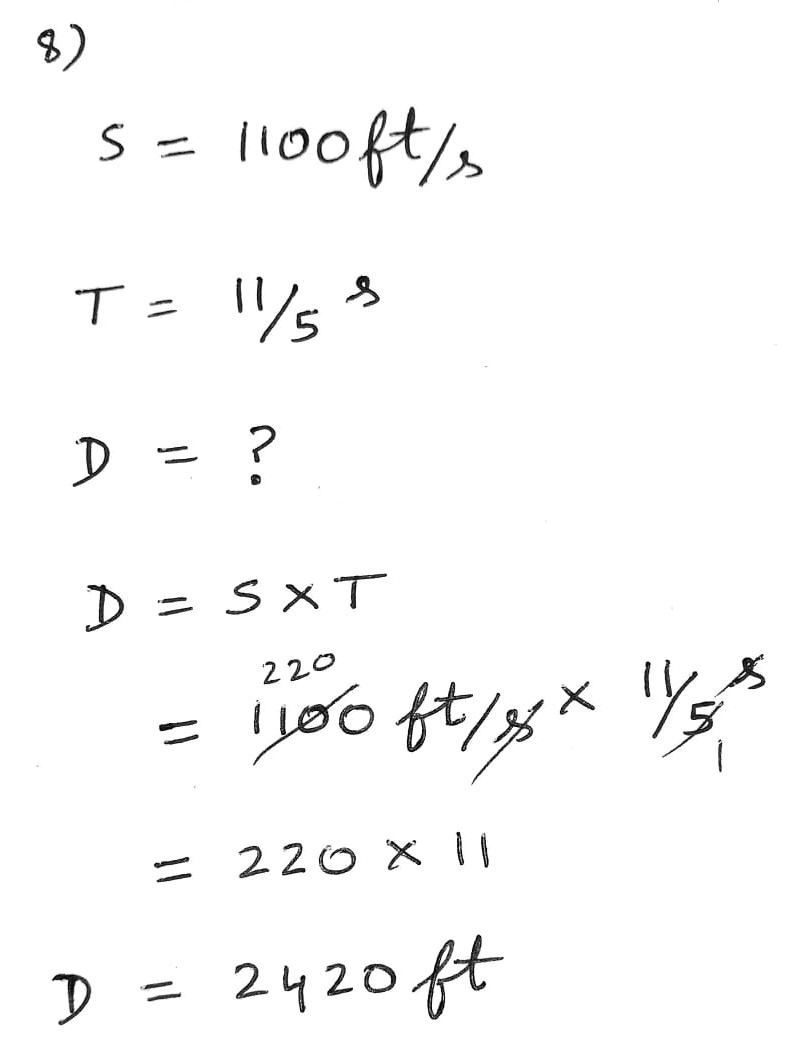 8)
S = 1100 ft/s
T = 11/5 s
D = ?
D = S × T
220
= 1100 ft/s × 11/5 s
1
= 220 × 11
D = 2420 ft